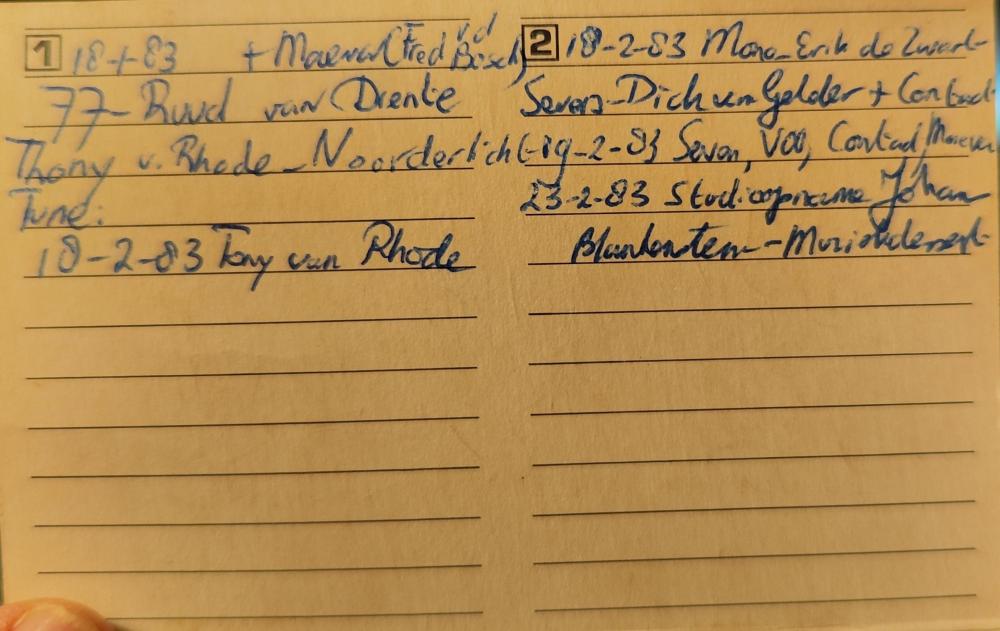 1 18-1-83 + Maeva (Fred v.d Bosch)
77 - Ruud van Drente
Thony v. Rhode - Noorderlicht
Tune:
18-2-83 Tony van Rhode
2 18-2-83 Mono-Erik de Zwart-
Seven-Dick van Gelder + Contact
-19-2-83 Seven, VOO, Contact,
23-2-83 Studioopname Johan
Blankenstein -